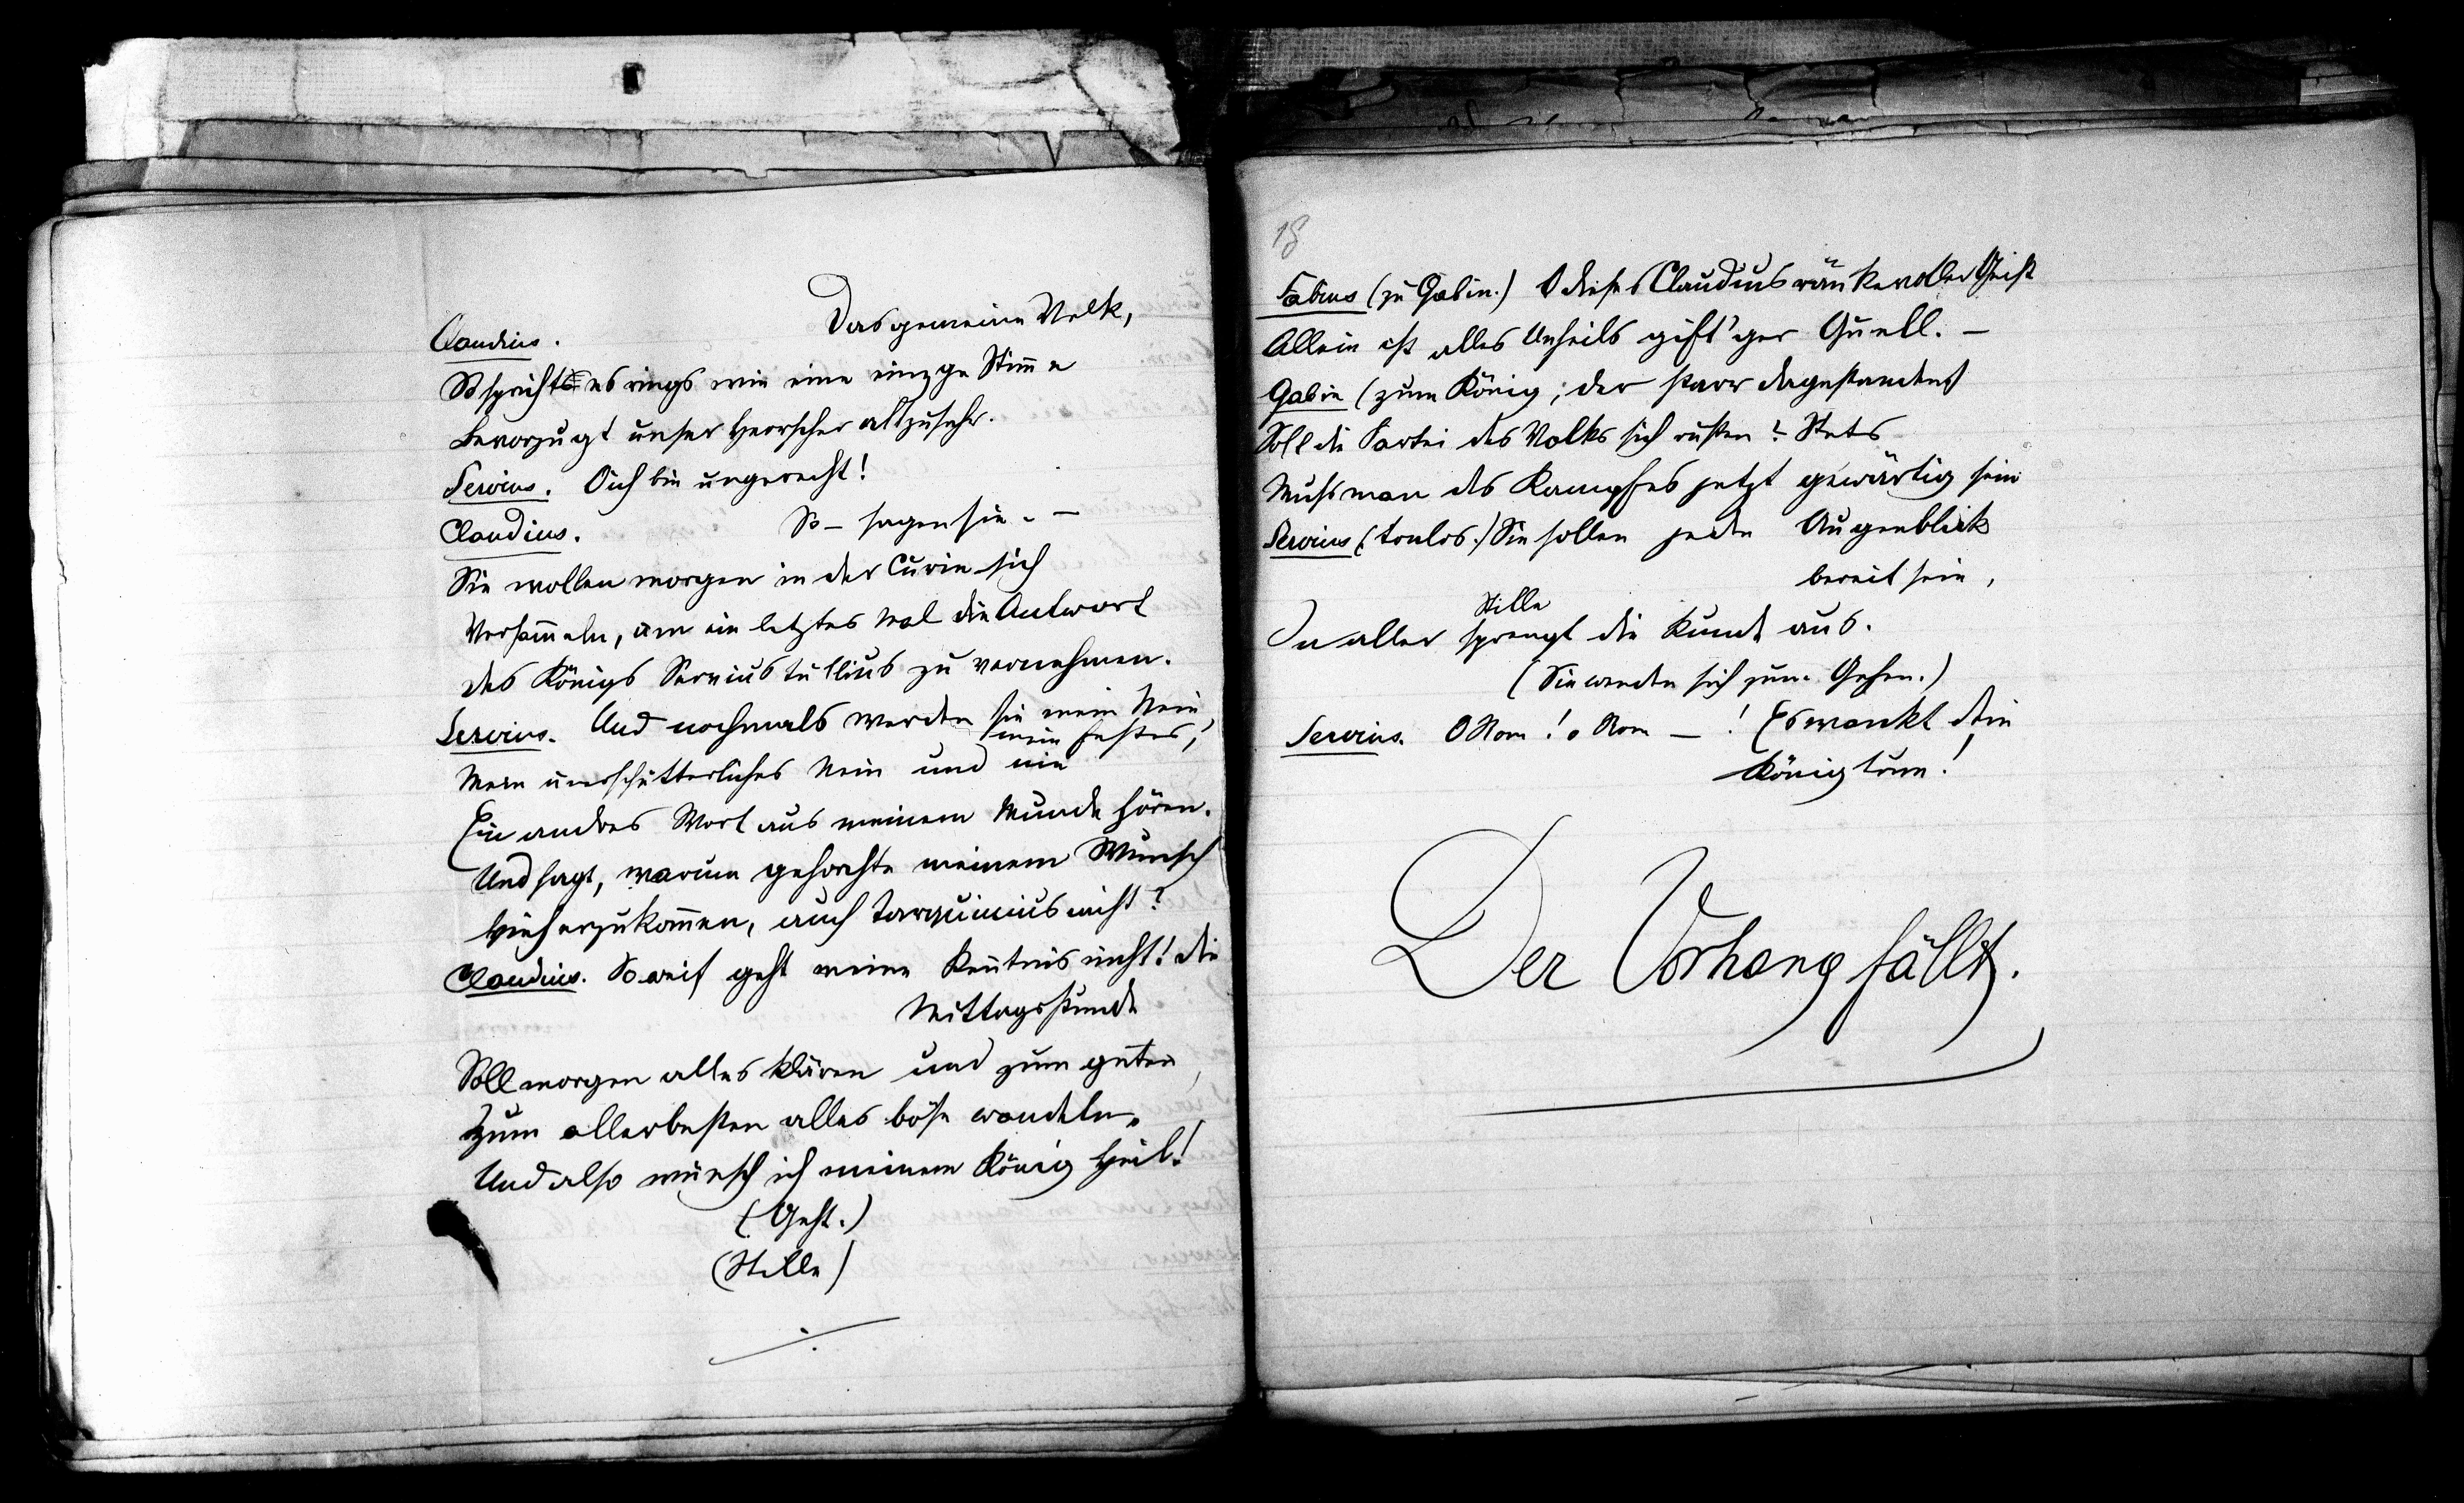 Das gemeine Volk,
Claudius.
So spricht es rings wie eine einzge Stim̄e
Bevorzugt unser Herrscher allzusehr.
Servius. O ich bin ungerecht!
Claudius. So – sagen sie. –
Sie wollen morgen in der Curie sich
Versam̄eln, um ein letztes Mal die Antwort
des Königs Servius Tullius zu vernehmen.
Servius. Und nochmals werden sie mein Nein
mein festes,
Mein unerschütterliches Nein und nie
Ein andres Wort aus meinem Munde hören.
Und sagt, warum gehorchte meinem Wunsch
hieherzukom̄en, auch Tarquinius nicht?
Claudius. Soweit geht meine Ken̄tnis nicht! die
Mittagsstunde
Soll morgen alles klären und zum guten,
Zum allerbesten alles böse wandeln.
Und also wünsch ich meinem König Heil!
(Geht.)
(Stille)
18
Fabius (zu Gabin.) O dieses Claudius ränkevoller Geist
Allein ist alles Unheils gift'ger Quell. –
Gabin (zum König, der starr dagestanden)
Soll die Partei des Volks sich rüsten? Stets
Muss man des Kampfes jetzt gewärtig sein
Servius (tonlos.) Sie sollen jeden Augenblick
bereit sein,
Stille
In aller sprengt die Kunde aus.
(Sie wenden sich zum Gehen.)
Servius. O Rom! o Rom –! Es wankt dein
Königturm!
Der Vorhang fällt.